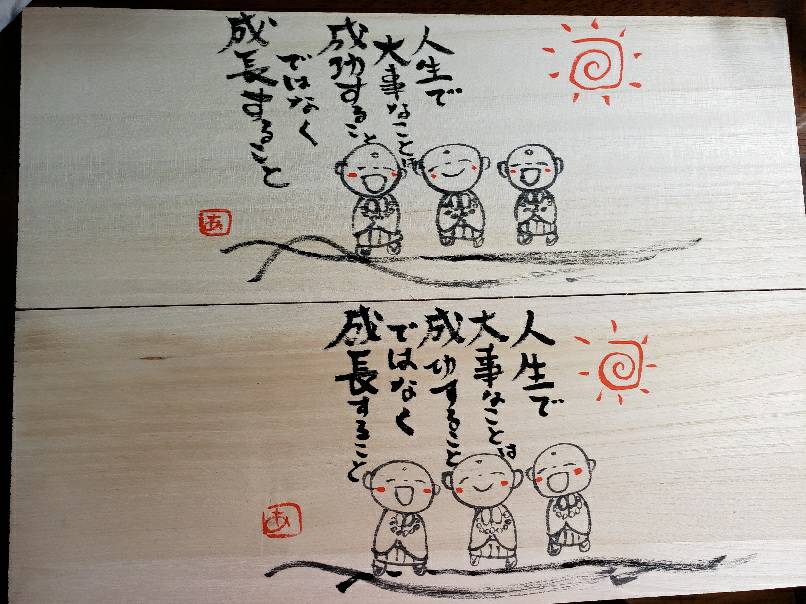 人生で
大事なことは
成功すること
ではなく
成長すること
あ
人生で
大事なことは
成功すること
ではなく
成長すること
あ